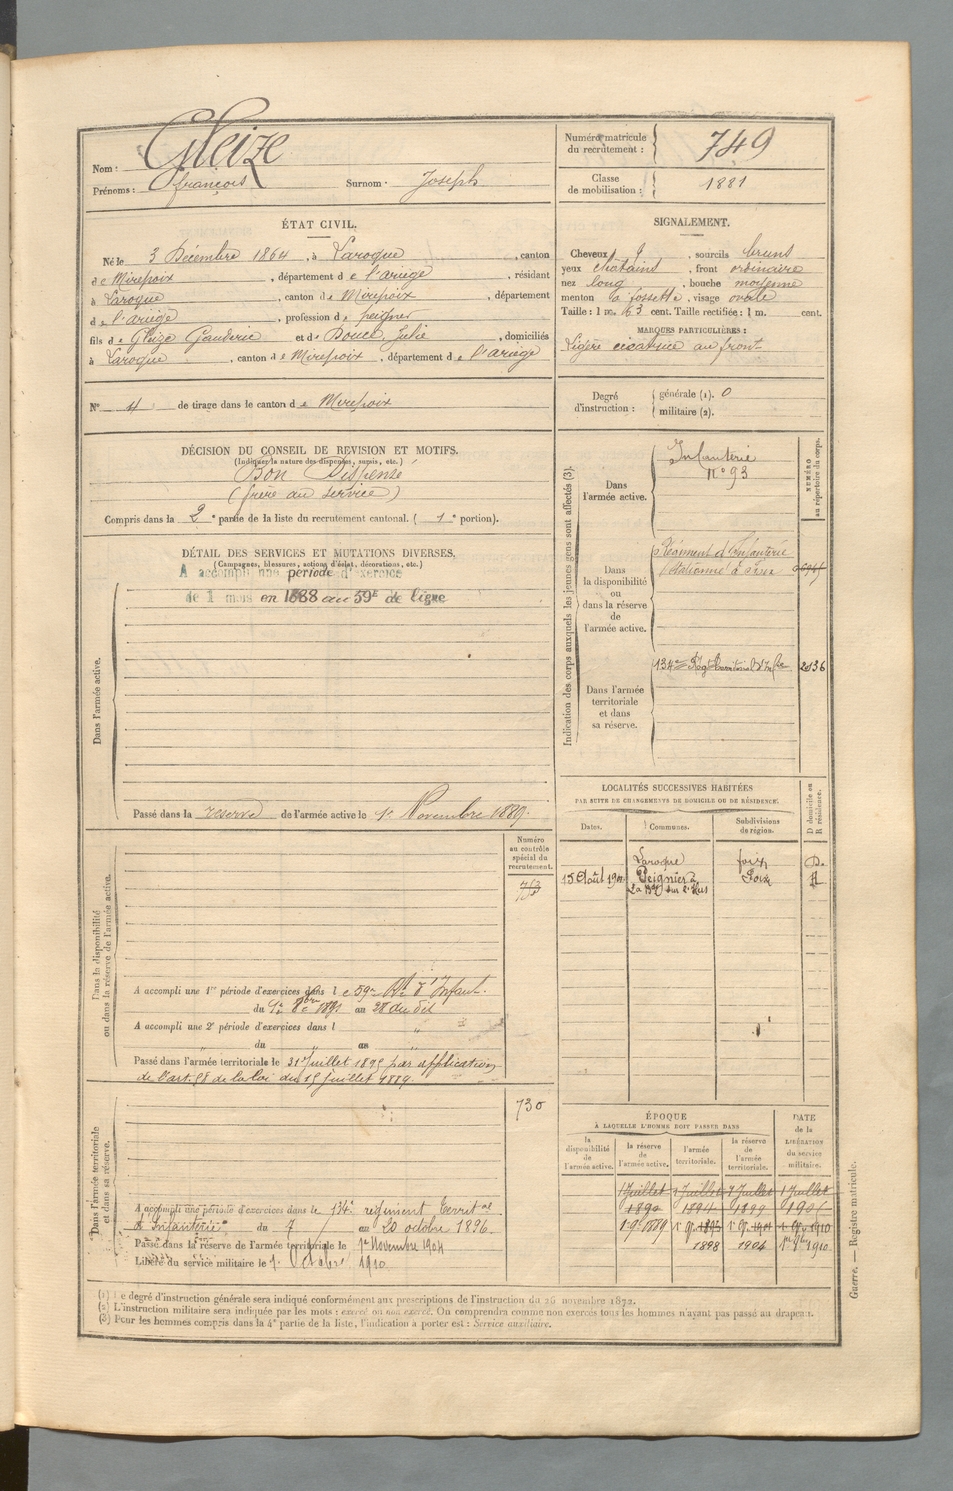 Nom : Gleize
Prénoms : françois Surnom : Joseph
Numéro matricule
du recrutement : 749
Classe
de mobilisation : 1881
ÉTAT CIVIL.
Né le 3 Décembre 1864, à Laroque, canton
de Mirepoix, département de l'ariège, résidant
à Laroque, canton de Mirepoix, département
de l'ariège, profession de peigneur
fils de Gleize Gauderic et de Doucé, Julie, domiciliés
à Laroque, canton de Mirepoix, département de l'ariège
N° 4 de tirage dans le canton de Mirepoix
SIGNALEMENT.
Cheveux, sourcils bruns
yeux chatains, front ordinaire
nez long, bouche moyenne
menton à fossette, visage ovale
Taille : 1 m. 63 cent. Taille rectifiée : 1 m. cent.
MARQUES PARTICULIÈRES :
Légère cicatrice au front
Degré
d'instruction :
générale (1). 0
militaire (2).
DÉCISION DU CONSEIL DE REVISION ET MOTIFS.
(Indiquer la nature des dispenses, sursis, etc.)
Bon Dispensé
(frère au service)
Compris dans la 2e partie de la liste du recrutement cantonal. (1e portion).
DÉTAIL DES SERVICES ET MUTATIONS DIVERSES.
(Campagnes, blessures, actions d'éclat, décorations, etc.)
A accompli une période d'exercice
de 1 mois en 1888 au 59E de ligne
Dans l'armée active.
Passé dans la reserve de l'armée active le 1er Novembre 1889.
Indication des corps auxquels les jeunes gens sont affectés (3).
NUMÉRO
au répertoire du corps.
Dans
l'armée active.
Infanterie
N° 93
Dans
la disponibilité
ou
dans la réserve
de
l'armée active.
Régiment d'Infanterie
stationné à Foix
134e Regt territorial d'Infie 2136
Dans l'armée
territoriale
et dans
sa réserve.
LOCALITÉS SUCCESSIVES HABITÉES
PAR SUITE DE CHANGEMENTS DE DOMICILE OU DE RÉSIDENCE.
D domicile ou
R résidence.
Dates. Communes. Subdivisions
de région.
Laroque foix D.
15 Août Peignier à Foix R
Dans la disponibilité
ou dans la réserve de l'armée active.
Numéro
au contrôle
spécial du
recrutement.
A accompli une 1re période d'exercices dans le 59e Rt d'Infant.
du 1er 8bre 1891 au 28 du dit
A accompli une 2e période d'exercices dans l "
du " au "
Passé dans l'armée territoriale le 31 Juillet 1895 par application
de l'art. 58 de la loi du 15 juillet 1889.
Dans l'armée territoriale
et dans sa réserve.
730
A accompli une période d'exercices dans le 134e régiment Territal
d'Infanterie du 7 au 20 octobre 1896
Passé dans la réserve de l'armée territoriale le 1er Novembre 1904
Libéré du service militaire le 1er Octobre 1910.
ÉPOQUE
À LAQUELLE L'HOMME DOIT PASSER DANS
la
disponibilité
de
l'armée active.
la réserve
de
l'armée active.
l'armée
territoriale.
la réserve
de
l'armée
territoriale.
DATE
de la
LIBÉRATION
du service
militaire.
1 Juillet 1 Juillet 1 Juillet 1 Juillet
1890 1894 1899 1905
1898 1904 1910
(1) Le degré d'instruction générale sera indiqué conformément aux prescriptions de l'instruction du 26 novembre 1872.
(2) L'instruction militaire sera indiquée par les mots : exercé ou non exercé. On comprendra comme non exercés tous les hommes n'ayant pas passé au drapeau.
(3) Pour les hommes compris dans la 4e partie de la liste, l'indication à porter est : Service auxiliaire.
Guerre. — Registre matricule.